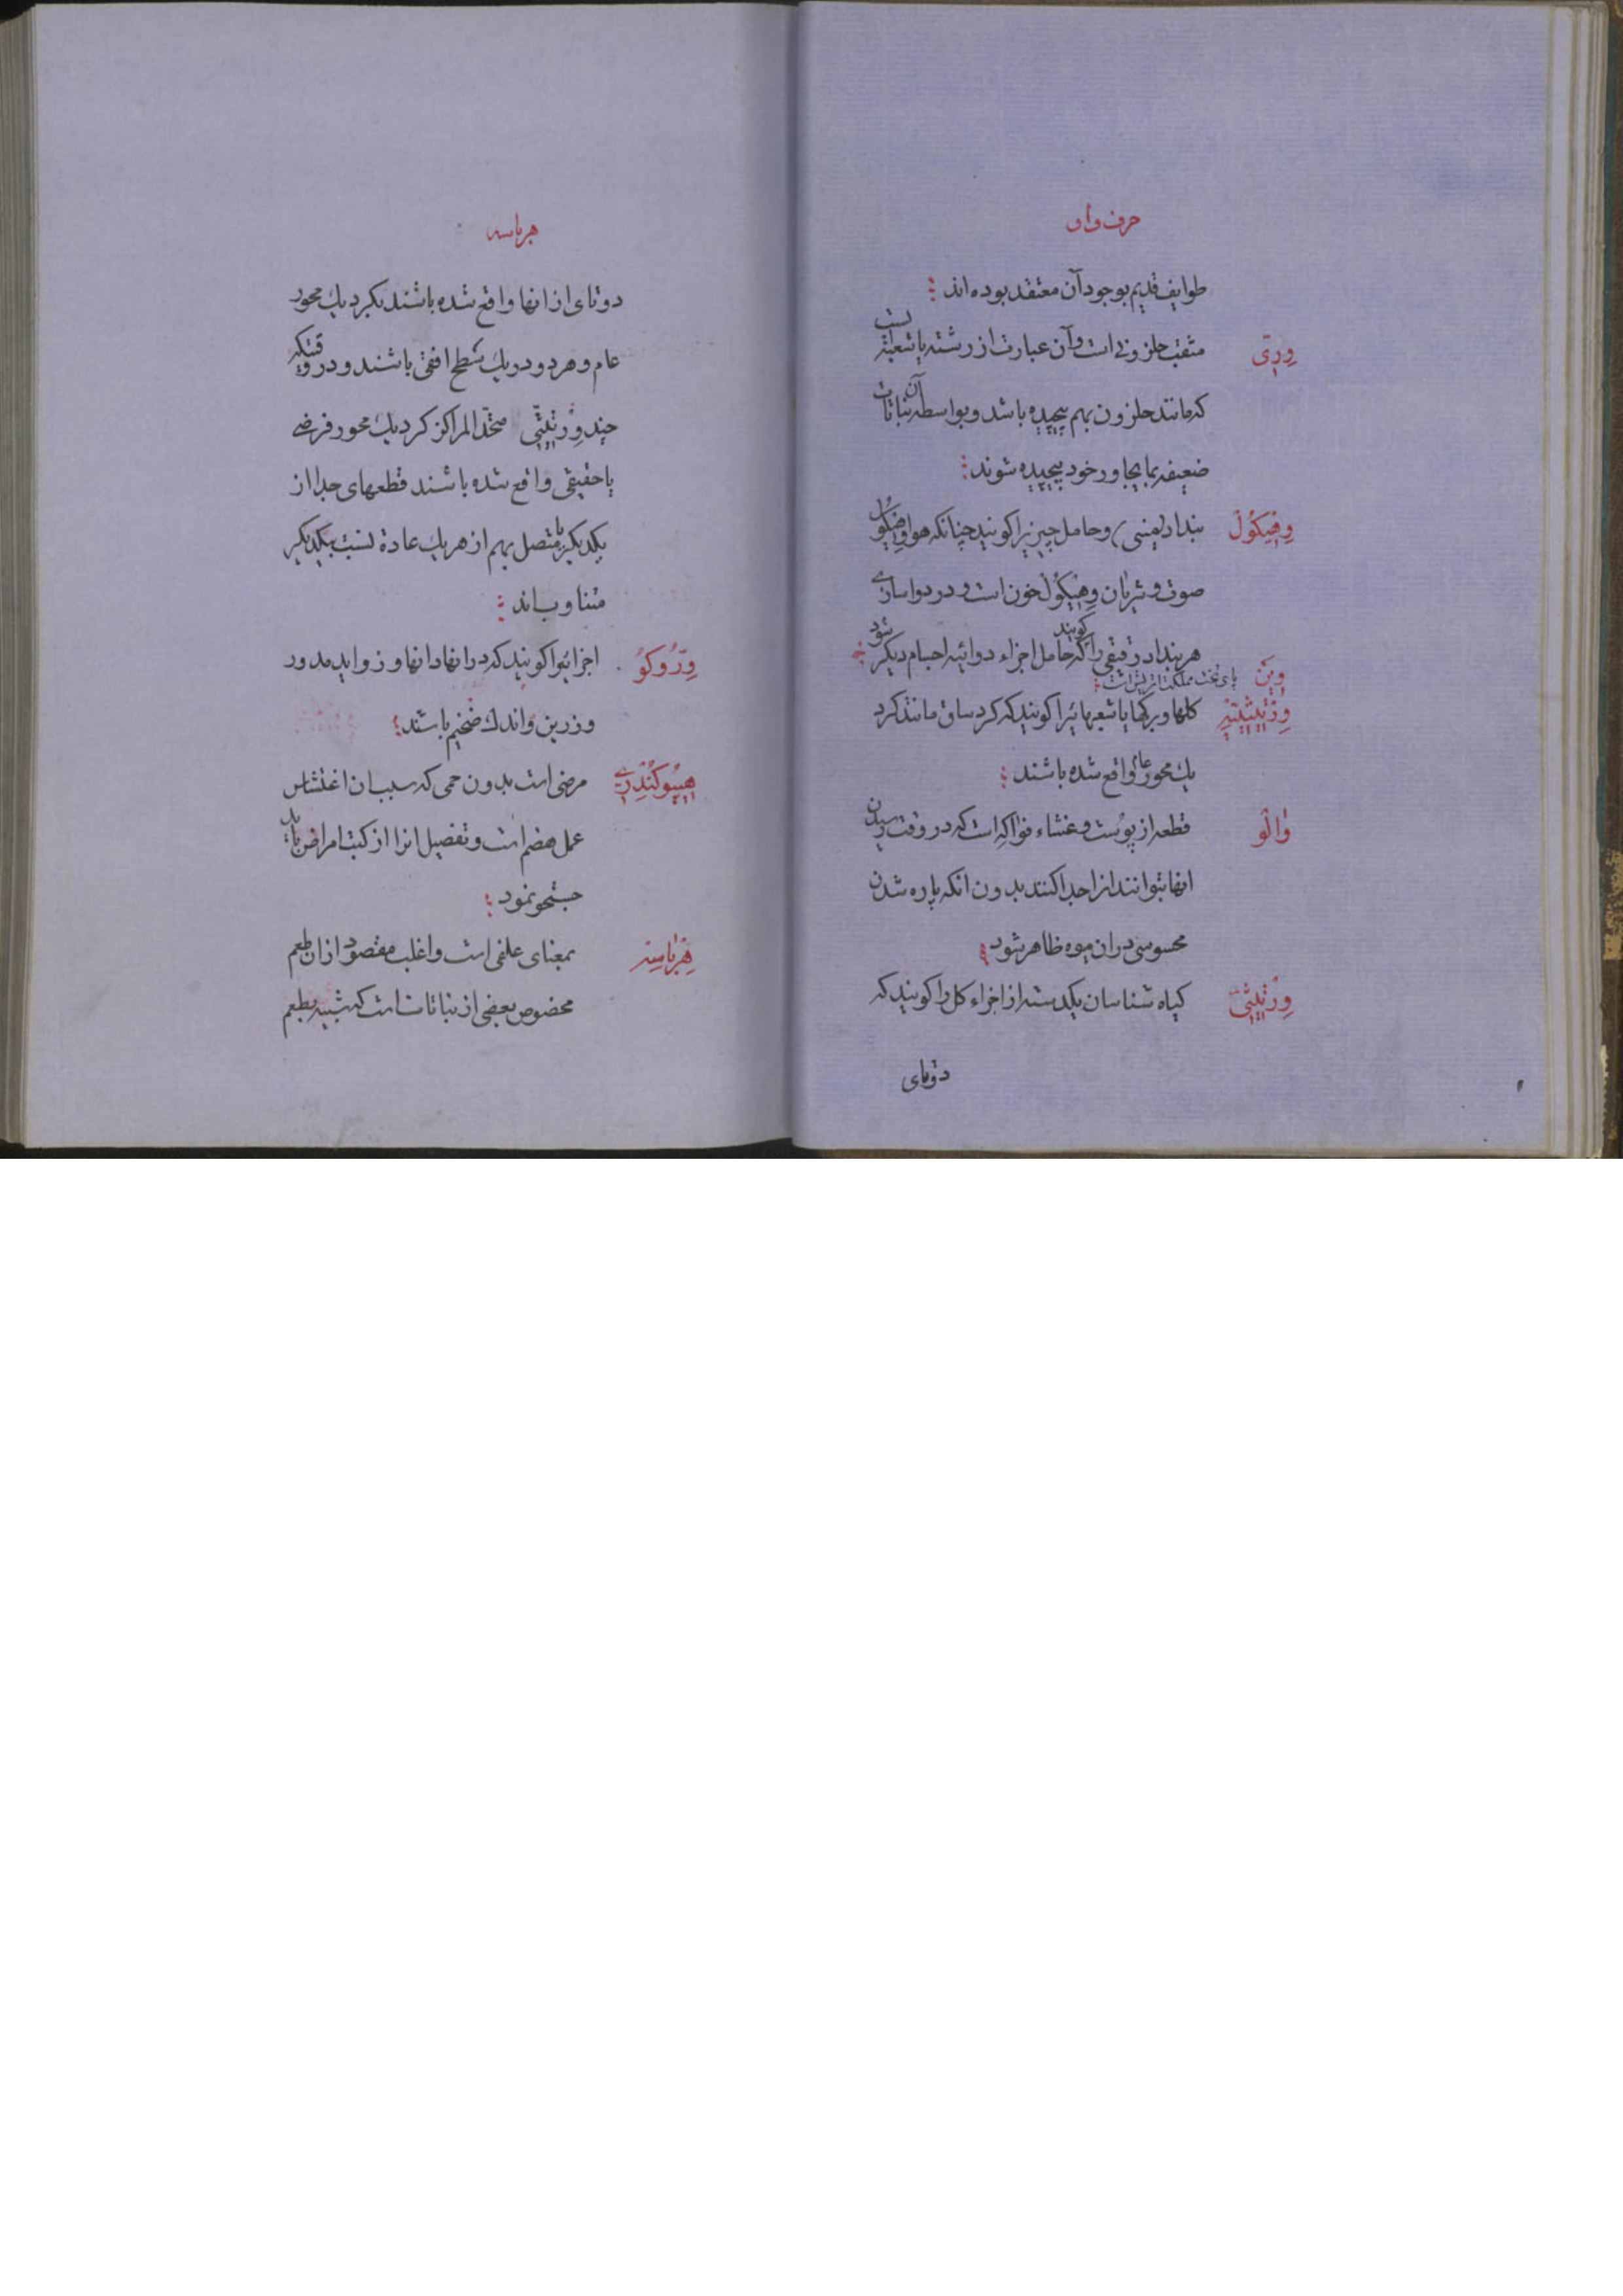 حرف واو
طوایف قدیم بوجود آن معتقد بوده اند
وِرِتّی مثقب حلزونی است و آن عبارت از رشته یا شعبهٔ است
که مانند حلزون بهم پیچیده باشد و بواسطه آن نباتات
ضعیفه بمایجاور خود پیچیده شوند
وِهِیکُولْ بنداد لیمنی و حامل چیزیرا کویند چنانکه هوا وهیکول
صوت و شریان وهیکول خون است و در دواسازی
هر بنداد رقیقی را کویند که حامل اجزاء دوائیه اجسام دیکر شود
وِینْ پای تخت مملکت اتریش است
کلها و برکها یا شعبهائیرا کویند که کرد ساق مانند کرد
یك محور عام واقع شده باشند
وٰالْو قطعه از پوست و غشاء فواکه است که در وقت رسیدن
انها بتوانند انرا جدا کنند بدون انکه پاره شدن
محسوسی دران میوه ظاهر شود
وِرْتِیْثِی کیاه شناسان یکدسته از اجزاء کل را کویند که
دوتای
هرباسه
دوتای از انها واقع شده باشند بکرد یك محور
عام و هر دو در یك سطح افقی باشند و در وقتیکه
چند ورتیثی متحد المراکز کرد یك محور فرضی
یا حقیقی واقع شده باشند قطعهای جدا از
یکدیکر یا متصل بهم از هر یك عادة نسبت بیکدیکر
متناوب اند
وِرّوکوُ اجزائیرا کویند که در انها دانها و زواید مدور
و زرین و اندك ضخیم باشند
هیپوکُنْدِری مرضی است بدون حمی که سبب ان اغتشاش
عمل هضم است و تفصیل انرا از کتب امراض باید
جستجو نمود
هِرْباسِه بمعنای علفی است و اغلب مقصود از ان طعم
مخصوص بعضی از نباتات است که شبیه بطعم